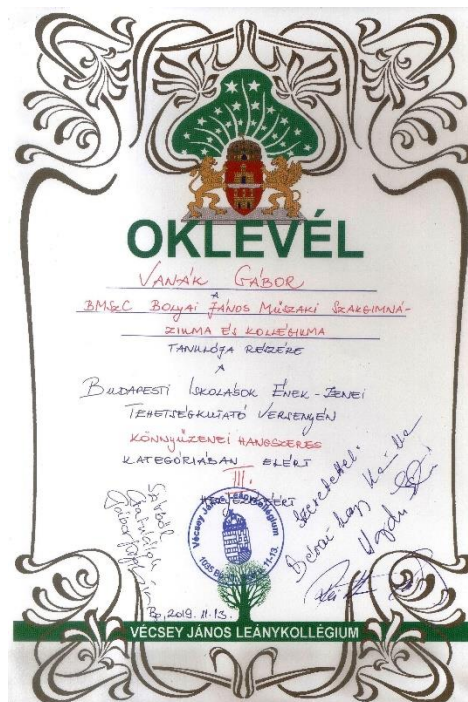 OKLEVÉL
VANÁK GÁBOR
A
BMSZC BOLYAI JÁNOS MŰSZAKI SZAKGIMNÁ-
ZIUMA ÉS KOLLÉGIUMA
TANULÓJA RÉSZÉRE
A
BUDAPESTI ISKOLÁSOK ÉNEK-ZENEI
TEHETSÉGKUTATÓ VERSENYÉN
KÖNNYŰZENEI HANGSZERES
KATEGÓRIÁBAN ELÉRT
III.
Szívből
Gratulálok
szeretettel:
Vécsey János Leánykollégium
1035 11-13.
Bp, 2019. 11. 13.
VÉCSEY JÁNOS LEÁNYKOLLÉGIUM